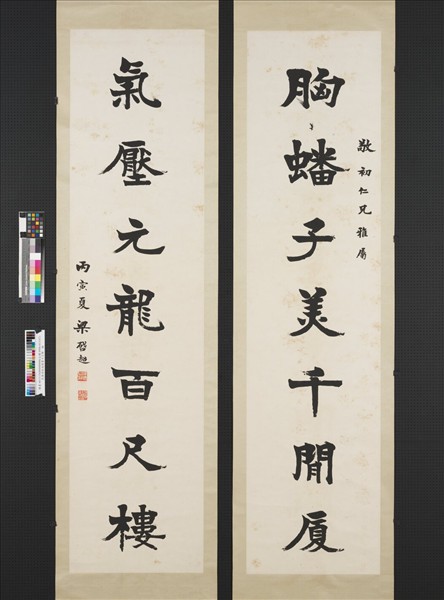 敬初仁兄雅屬
胸蟠子美千間廈
氣壓元龍百尺樓
丙寅夏 梁啓超